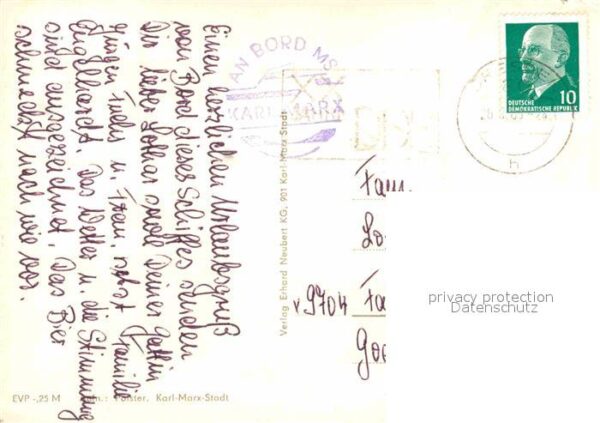 Einen herzlichen Urlaubsgruß
von Bord dieses Schiffes senden
Dir lieber Lothar sowie Deiner Gattin
Günter Fuchs u. Frau, nebst Familie
Engelhardt. Das Wetter u. die Stimmung
sind ausgezeichnet. Das Bier
schmeckt nach wie vor.
AN BORD MS
KARL MARX
10
DEUTSCHE
DEMOKRATISCHE REPUBLIK
h
Fam.
Lo
9704 Fa
Goe
Verlag Erhard Neubert KG, 901 Karl-Marx-Stadt
EVP -,25 M
Förster, Karl-Marx-Stadt
privacy protection
Datenschutz